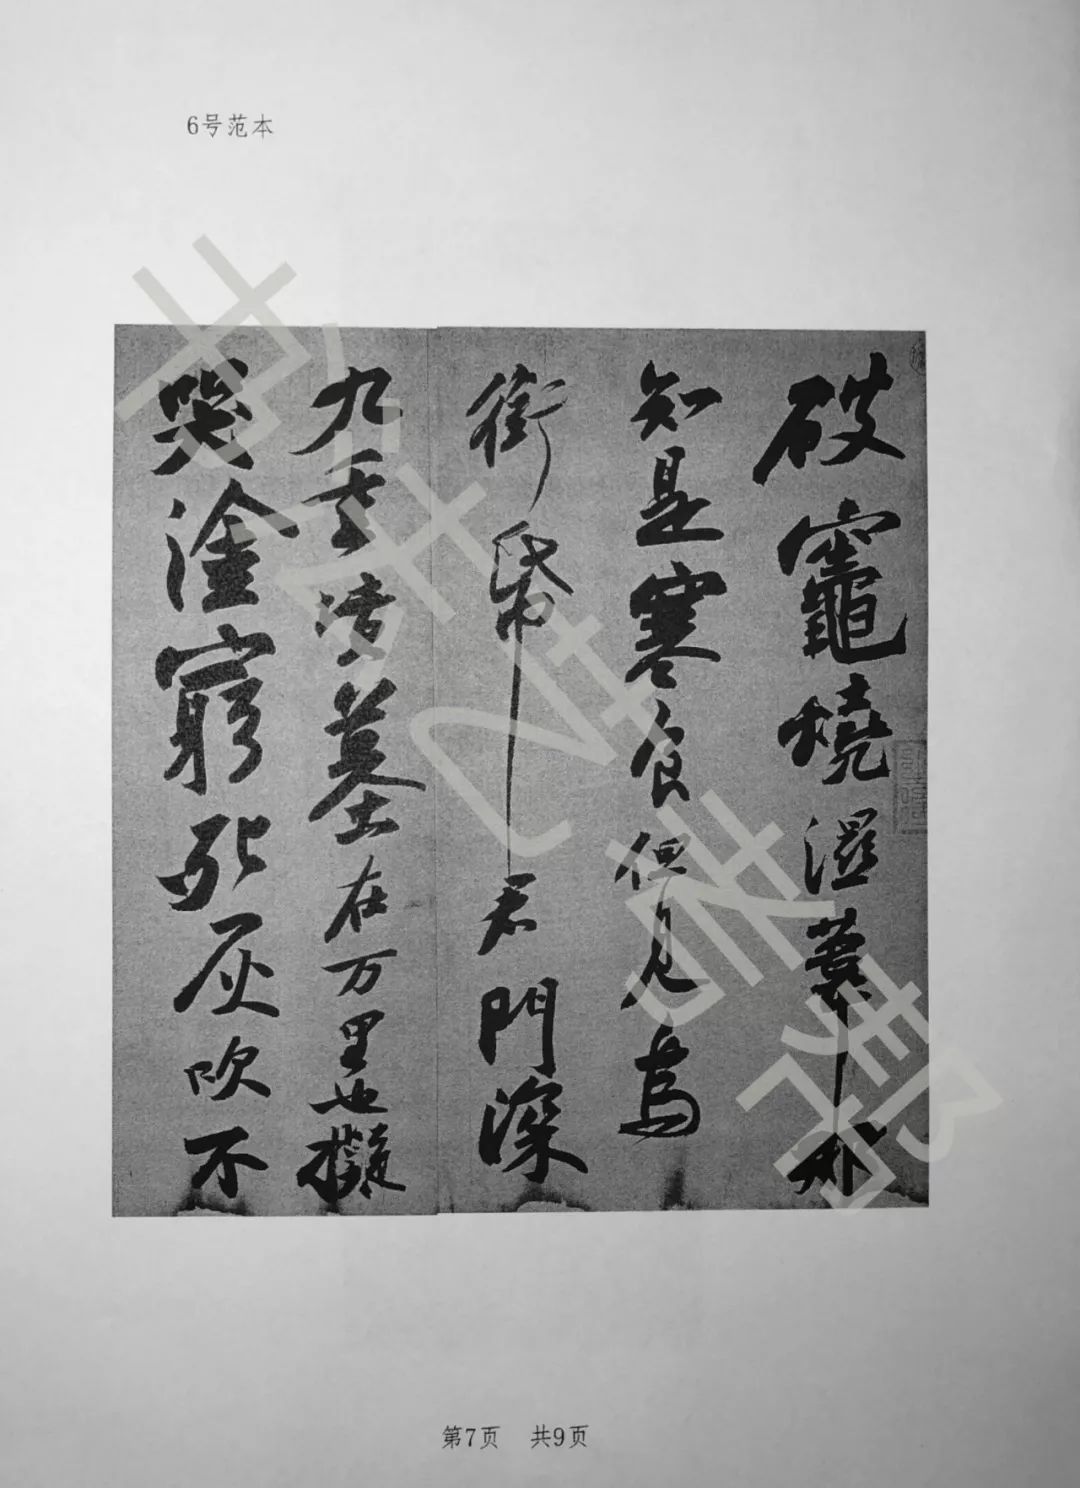 6号范本
破竈燒濕葦那
知是寒食但見烏
銜帋君門深
九重墳墓在万里也擬
哭塗窮死灰吹不
书法艺考帮
第7页 共9页